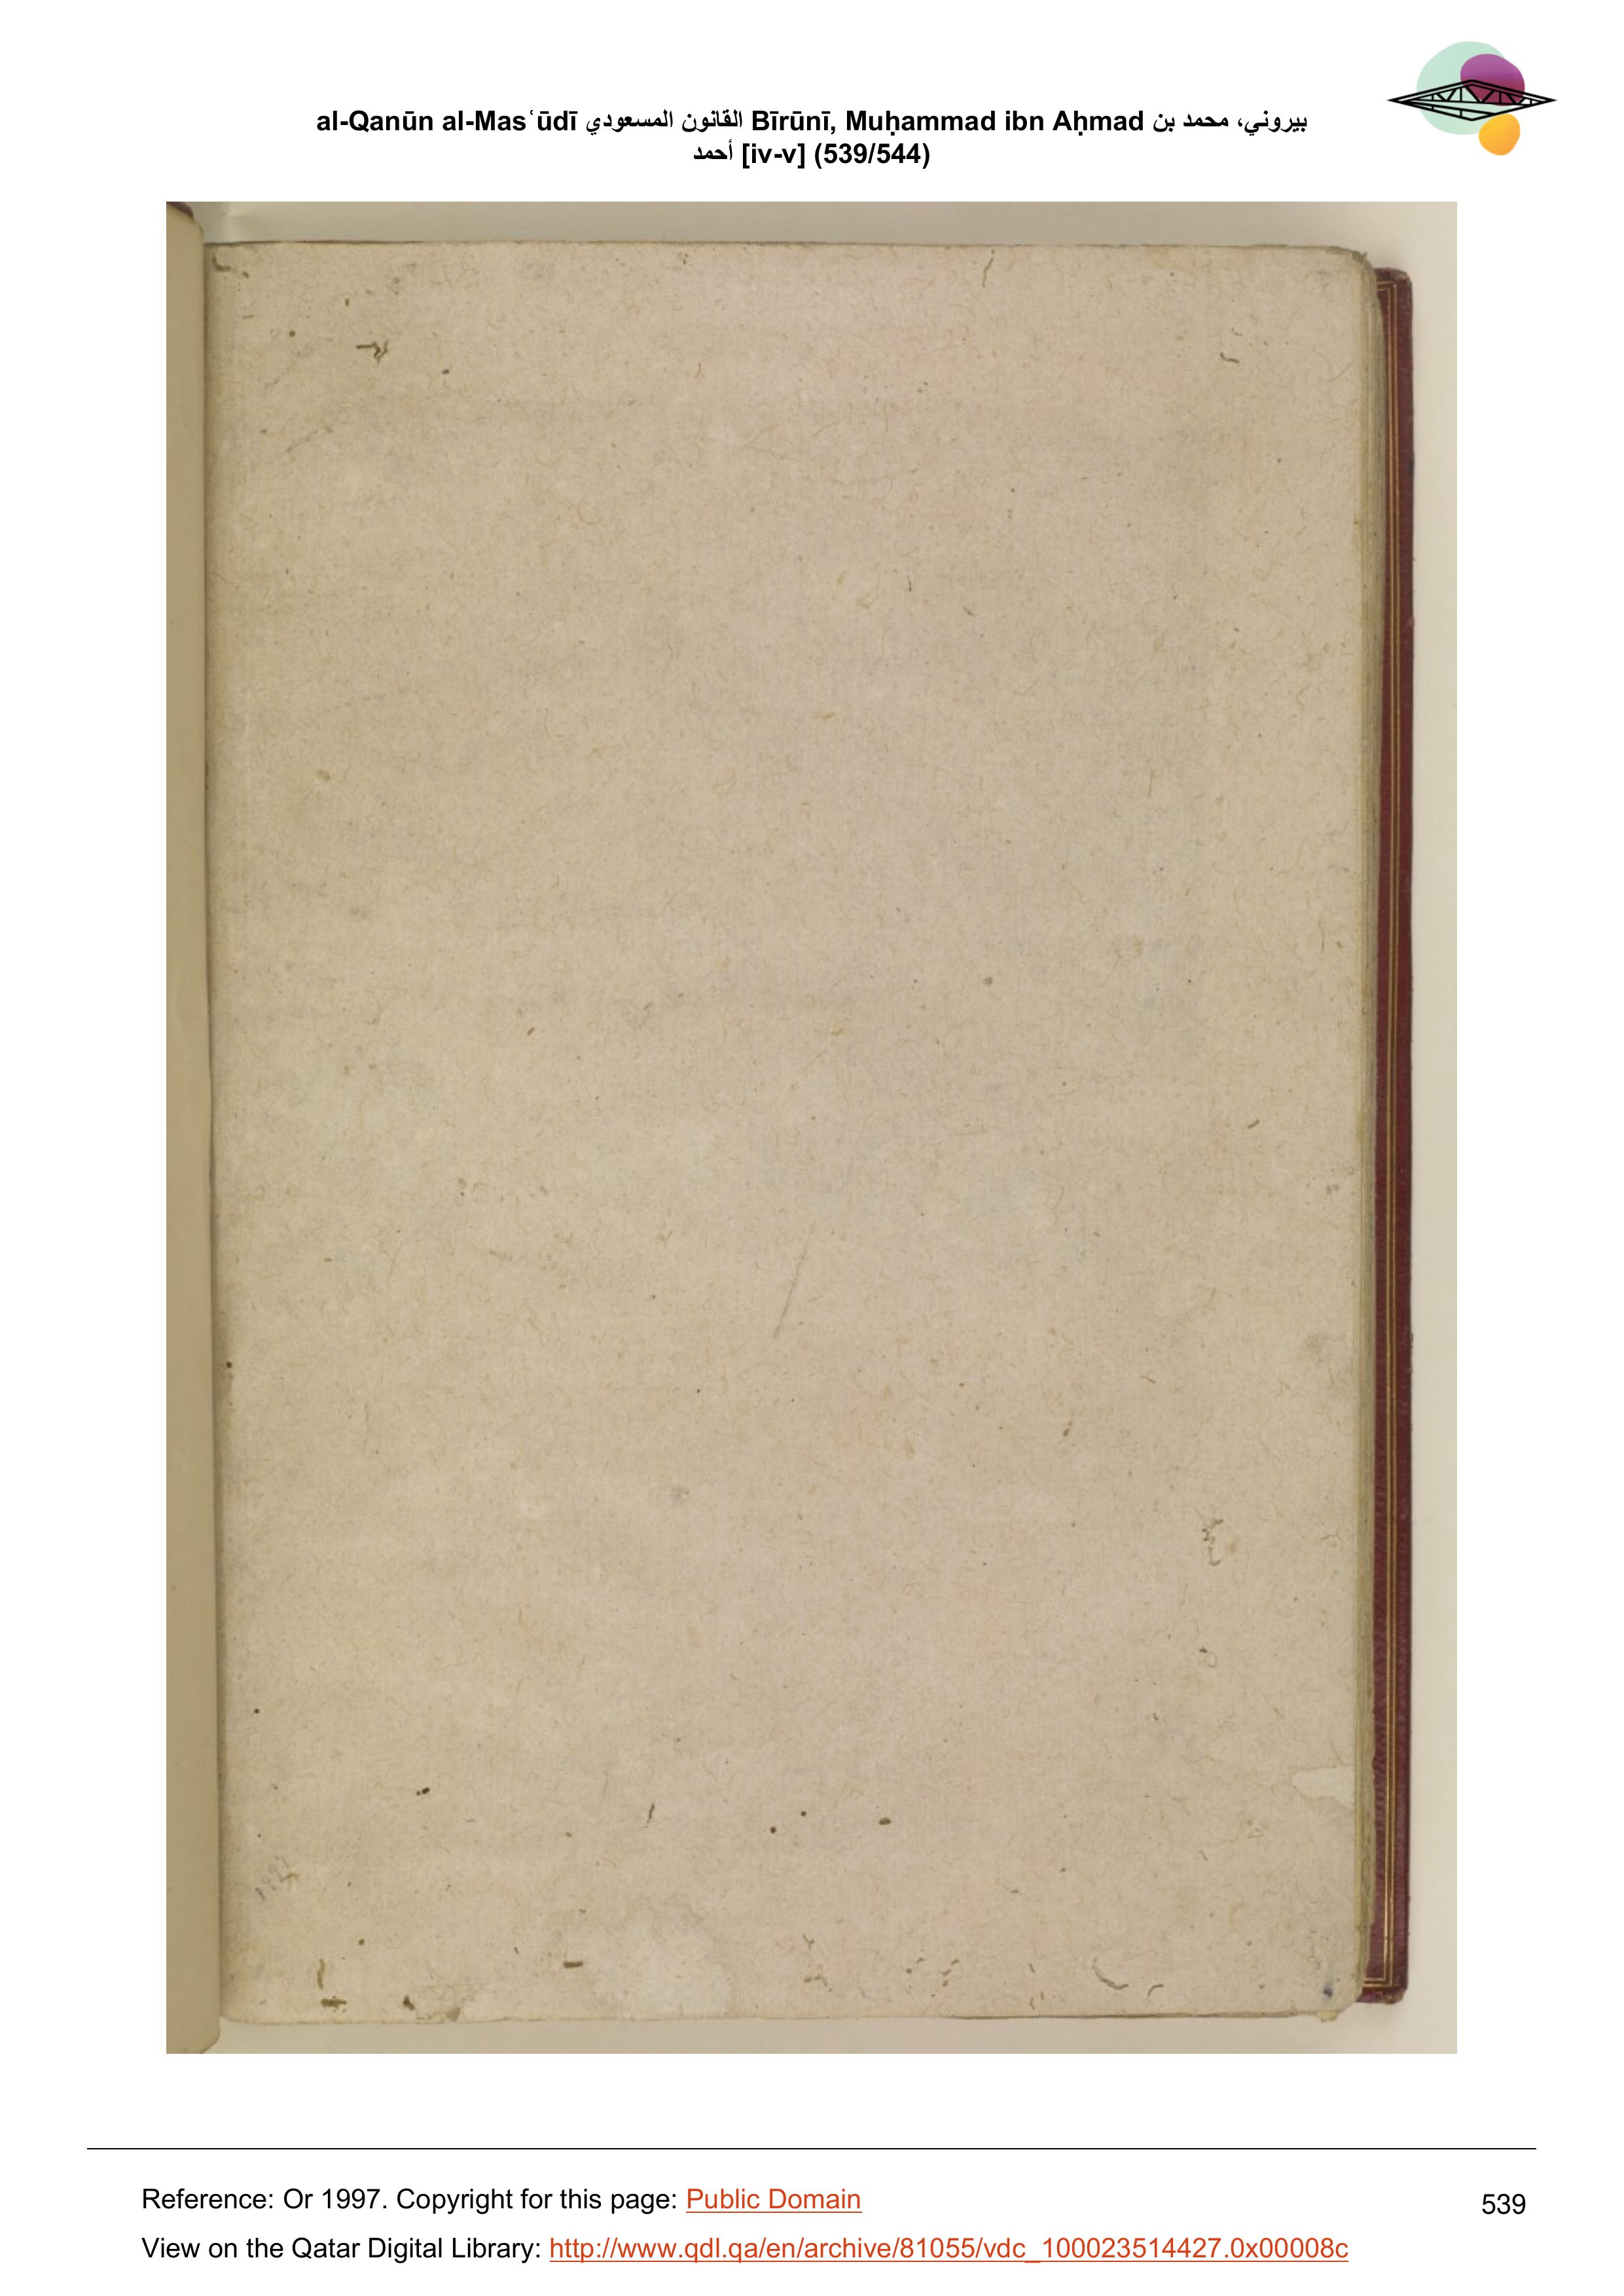 al-Qanūn al-Masʿūdī القانون المسعودي Bīrūnī, Muḥammad ibn Aḥmad بيروني، محمد بن
أحمد [iv-v] (539/544)
Reference: Or 1997. Copyright for this page: Public Domain
539
View on the Qatar Digital Library: http://www.qdl.qa/en/archive/81055/vdc_100023514427.0x00008c